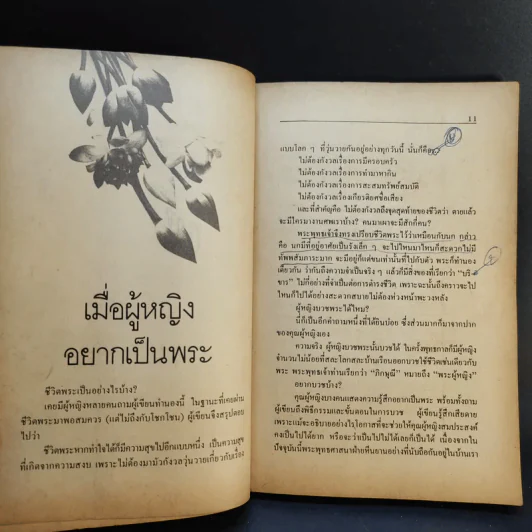 เมื่อผู้หญิง
อยากเป็นพระ
ชีวิตพระเป็นอย่างไรบ้าง?
เคยมีผู้หญิงหลายคนถามผู้เขียนทำนองนี้ ในฐานะที่เคยผ่าน
ชีวิตพระมาพอสมควร (แต่ไม่ถึงกับโชกโชน) ผู้เขียนจึงสรุปตอบ
ไปว่า
ชีวิตพระหากทำใจได้ก็มีความสุขไปอีกแบบหนึ่ง เป็นความสุข
ที่เกิดจากความสงบ เพราะไม่ต้องมามัวกังวลวุ่นวายเกี่ยวกับเรื่อง
11
แบบโลก ๆ ที่วุ่นวายกันอยู่อย่างทุกวันนี้ นั่นก็คือ
ไม่ต้องกังวลเรื่องการมีครอบครัว
ไม่ต้องกังวลเรื่องการทำมาหากิน
ไม่ต้องกังวลเรื่องการสะสมทรัพย์สมบัติ
ไม่ต้องกังวลเรื่องเกียรติยศชื่อเสียง
และที่สำคัญคือ ไม่ต้องกังวลถึงจุดสุดท้ายของชีวิตว่า ตายแล้ว
จะมีใครมางานศพเราบ้าง? คนมาเผาจะมีสักกี่คน?
พระพุทธเจ้าจึงทรงเปรียบชีวิตพระไว้ว่าเหมือนกับนก กล่าว
คือ นกมีที่อยู่อาศัยเป็นรังเล็ก ๆ จะไปไหนมาไหนก็สะดวกไม่มี
ทรัพย์สัมภาระมาก จะมีอยู่ก็แต่ขนเท่านั้นที่ไปกับตัว พระก็ทำนอง
เดียวกัน ว่ากันถึงความจำเป็นจริง ๆ แล้วก็มีสิ่งของที่เรียกว่า "บริ-
ขาร" ไม่กี่อย่างที่จำเป็นต่อการดำรงชีวิต เพราะฉะนั้นถึงคราวจะไป
ไหนก็ไปได้อย่างสะดวกสบายไม่ต้องห่วงหน้าพะวงหลัง
ผู้หญิงบวชพระได้ไหม?
นี่ก็เป็นอีกคำถามหนึ่งที่ได้ยินบ่อย ซึ่งส่วนมากก็มาจากปาก
ของคุณผู้หญิงเอง
ความจริง ผู้หญิงบวชพระนั้นบวชได้ ในครั้งพุทธกาลก็มีผู้หญิง
จำนวนไม่น้อยที่สละโลกสละบ้านเรือนออกบวชใช้ชีวิตเช่นเดียวกับ
พระ พระพุทธเจ้าท่านเรียกว่า "ภิกษุณี" หมายถึง "พระผู้หญิง"
อยากบวชบ้าง?
คุณผู้หญิงบางคนแสดงความรู้สึกอยากเป็นพระ พร้อมทั้งถาม
ผู้เขียนถึงพิธีกรรมและขั้นตอนในการบวช ผู้เขียนรู้สึกเสียดาย
เพราะแม้จะอธิบายอย่างไรโอกาสที่จะช่วยให้คุณผู้หญิงสมประสงค์
คงเป็นไปได้ยาก หรือจะว่าเป็นไปไม่ได้เลยก็เป็นได้ เนื่องจากใน
ปัจจุบันนี้พระพุทธศาสนาฝ่ายหีนยานอย่างที่นับถือกันอยู่ในบ้านเรา